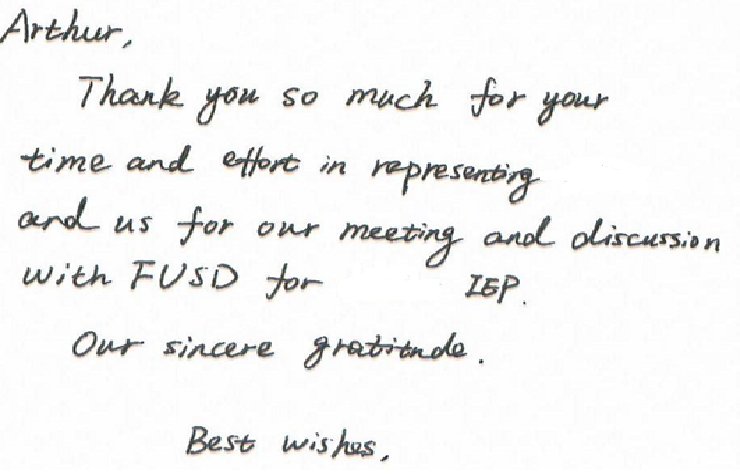 Arthur,
Thank you so much for your
time and effort in representing
and us for our meeting and discussion
with FUSD for IEP.
Our sincere gratitude.
Best wishes,